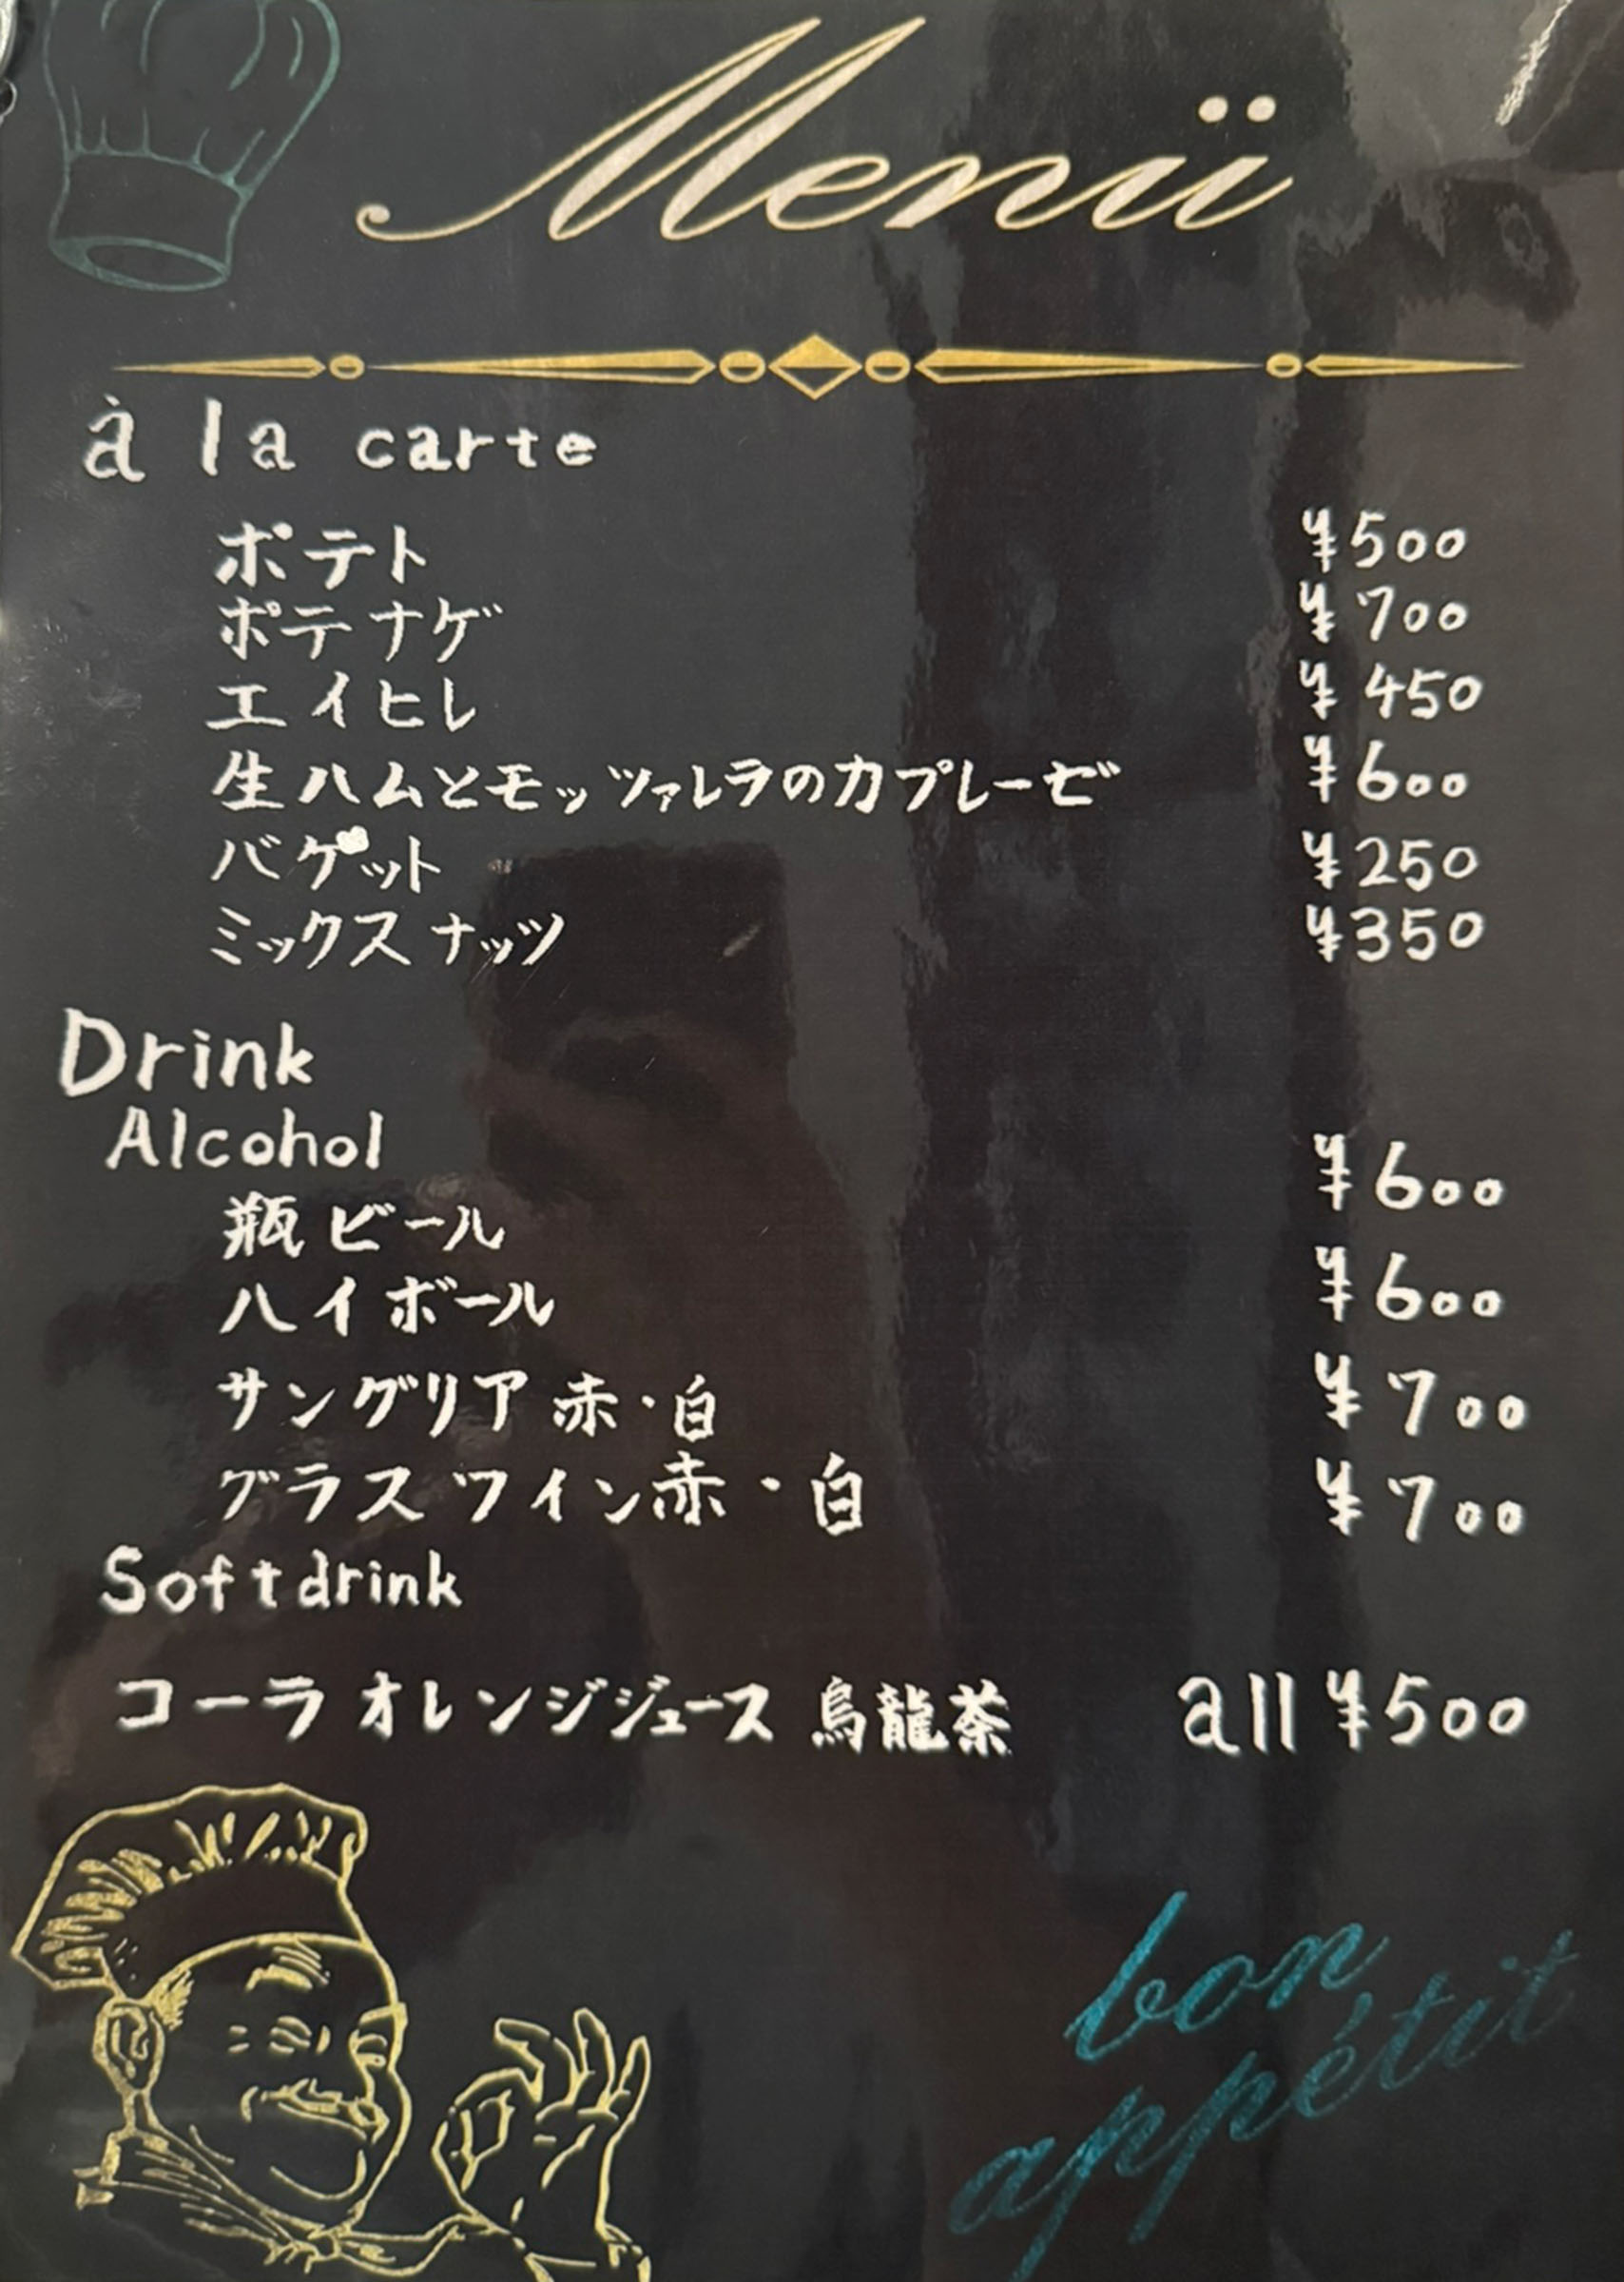 Menü
à la carte
ポテト ¥500
ポテナゲ ¥700
エイヒレ ¥450
生ハムとモッツァレラのカプレーゼ ¥600
バゲット ¥250
ミックスナッツ ¥350
Drink
Alcohol
瓶ビール ¥600
ハイボール ¥600
サングリア 赤・白 ¥700
グラスワイン赤・白 ¥700
Softdrink
コーラ オレンジジュース 烏龍茶 all ¥500
bon
appétit